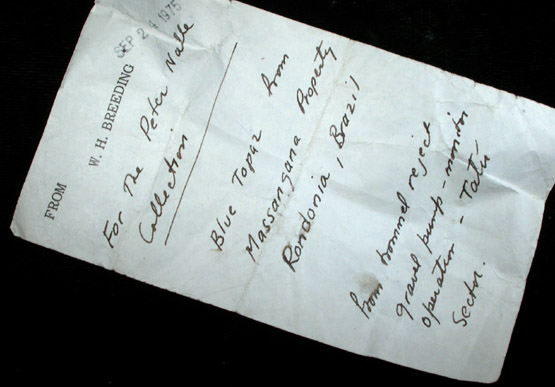 SEP 24 1975
FROM W. H. BREEDING
For The Peter Nalle
Collection
Blue Topaz from
Massangana Property
Rondonia, Brazil
from trommel reject
gravel pump-monitor
operation - Tatú
Sector.